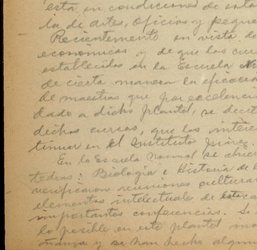 está en condiciones de esta
la de artes, oficios y peque
Recientemente en vista de
económicas y de que los cur
establecidos en la Escuela No
de cierta manera la eficacia
de maestras que por excelencia
dado a dicho plantel, se decre
dichos cursos, que los intere
tinuar en el Instituto Juárez
En la Escuela Normal se
tedras: Biología e Historia de
verificaron reuniones cultura
elementos intelectuales de
importantes conferencias. Se
lo posible en este plantel
ñanza y se han hecho algun